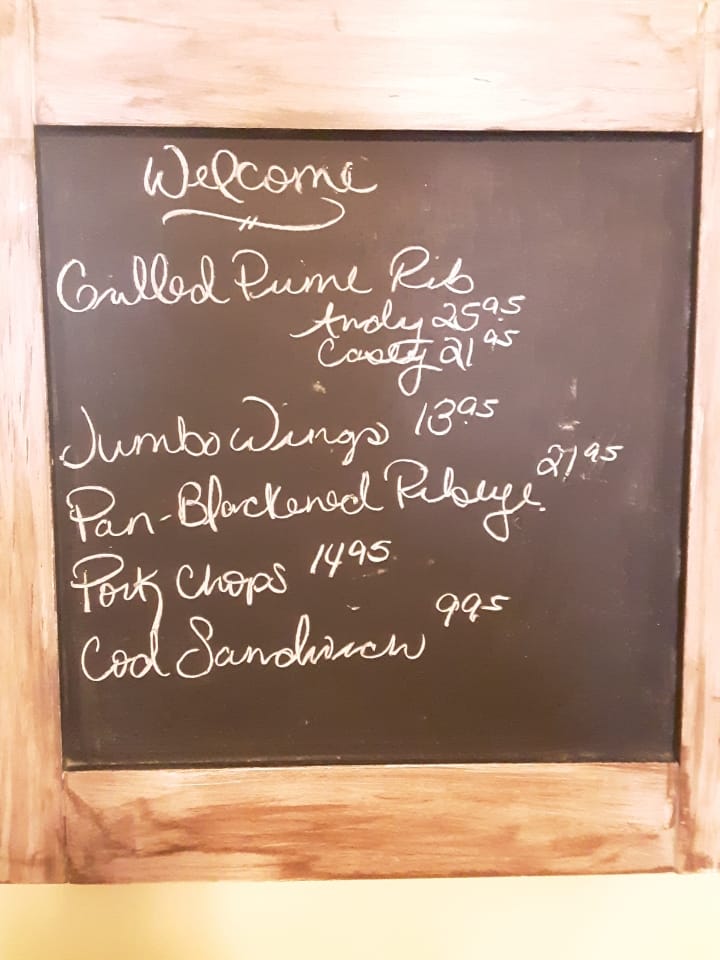 Welcome
Grilled Prime Rib
Andy 25 95
Casey 21 95
Jumbo Wings 13 95
Pan-Blackened Ribeye 21 95
Pork Chops 14 95
Cod Sandwich 9 95